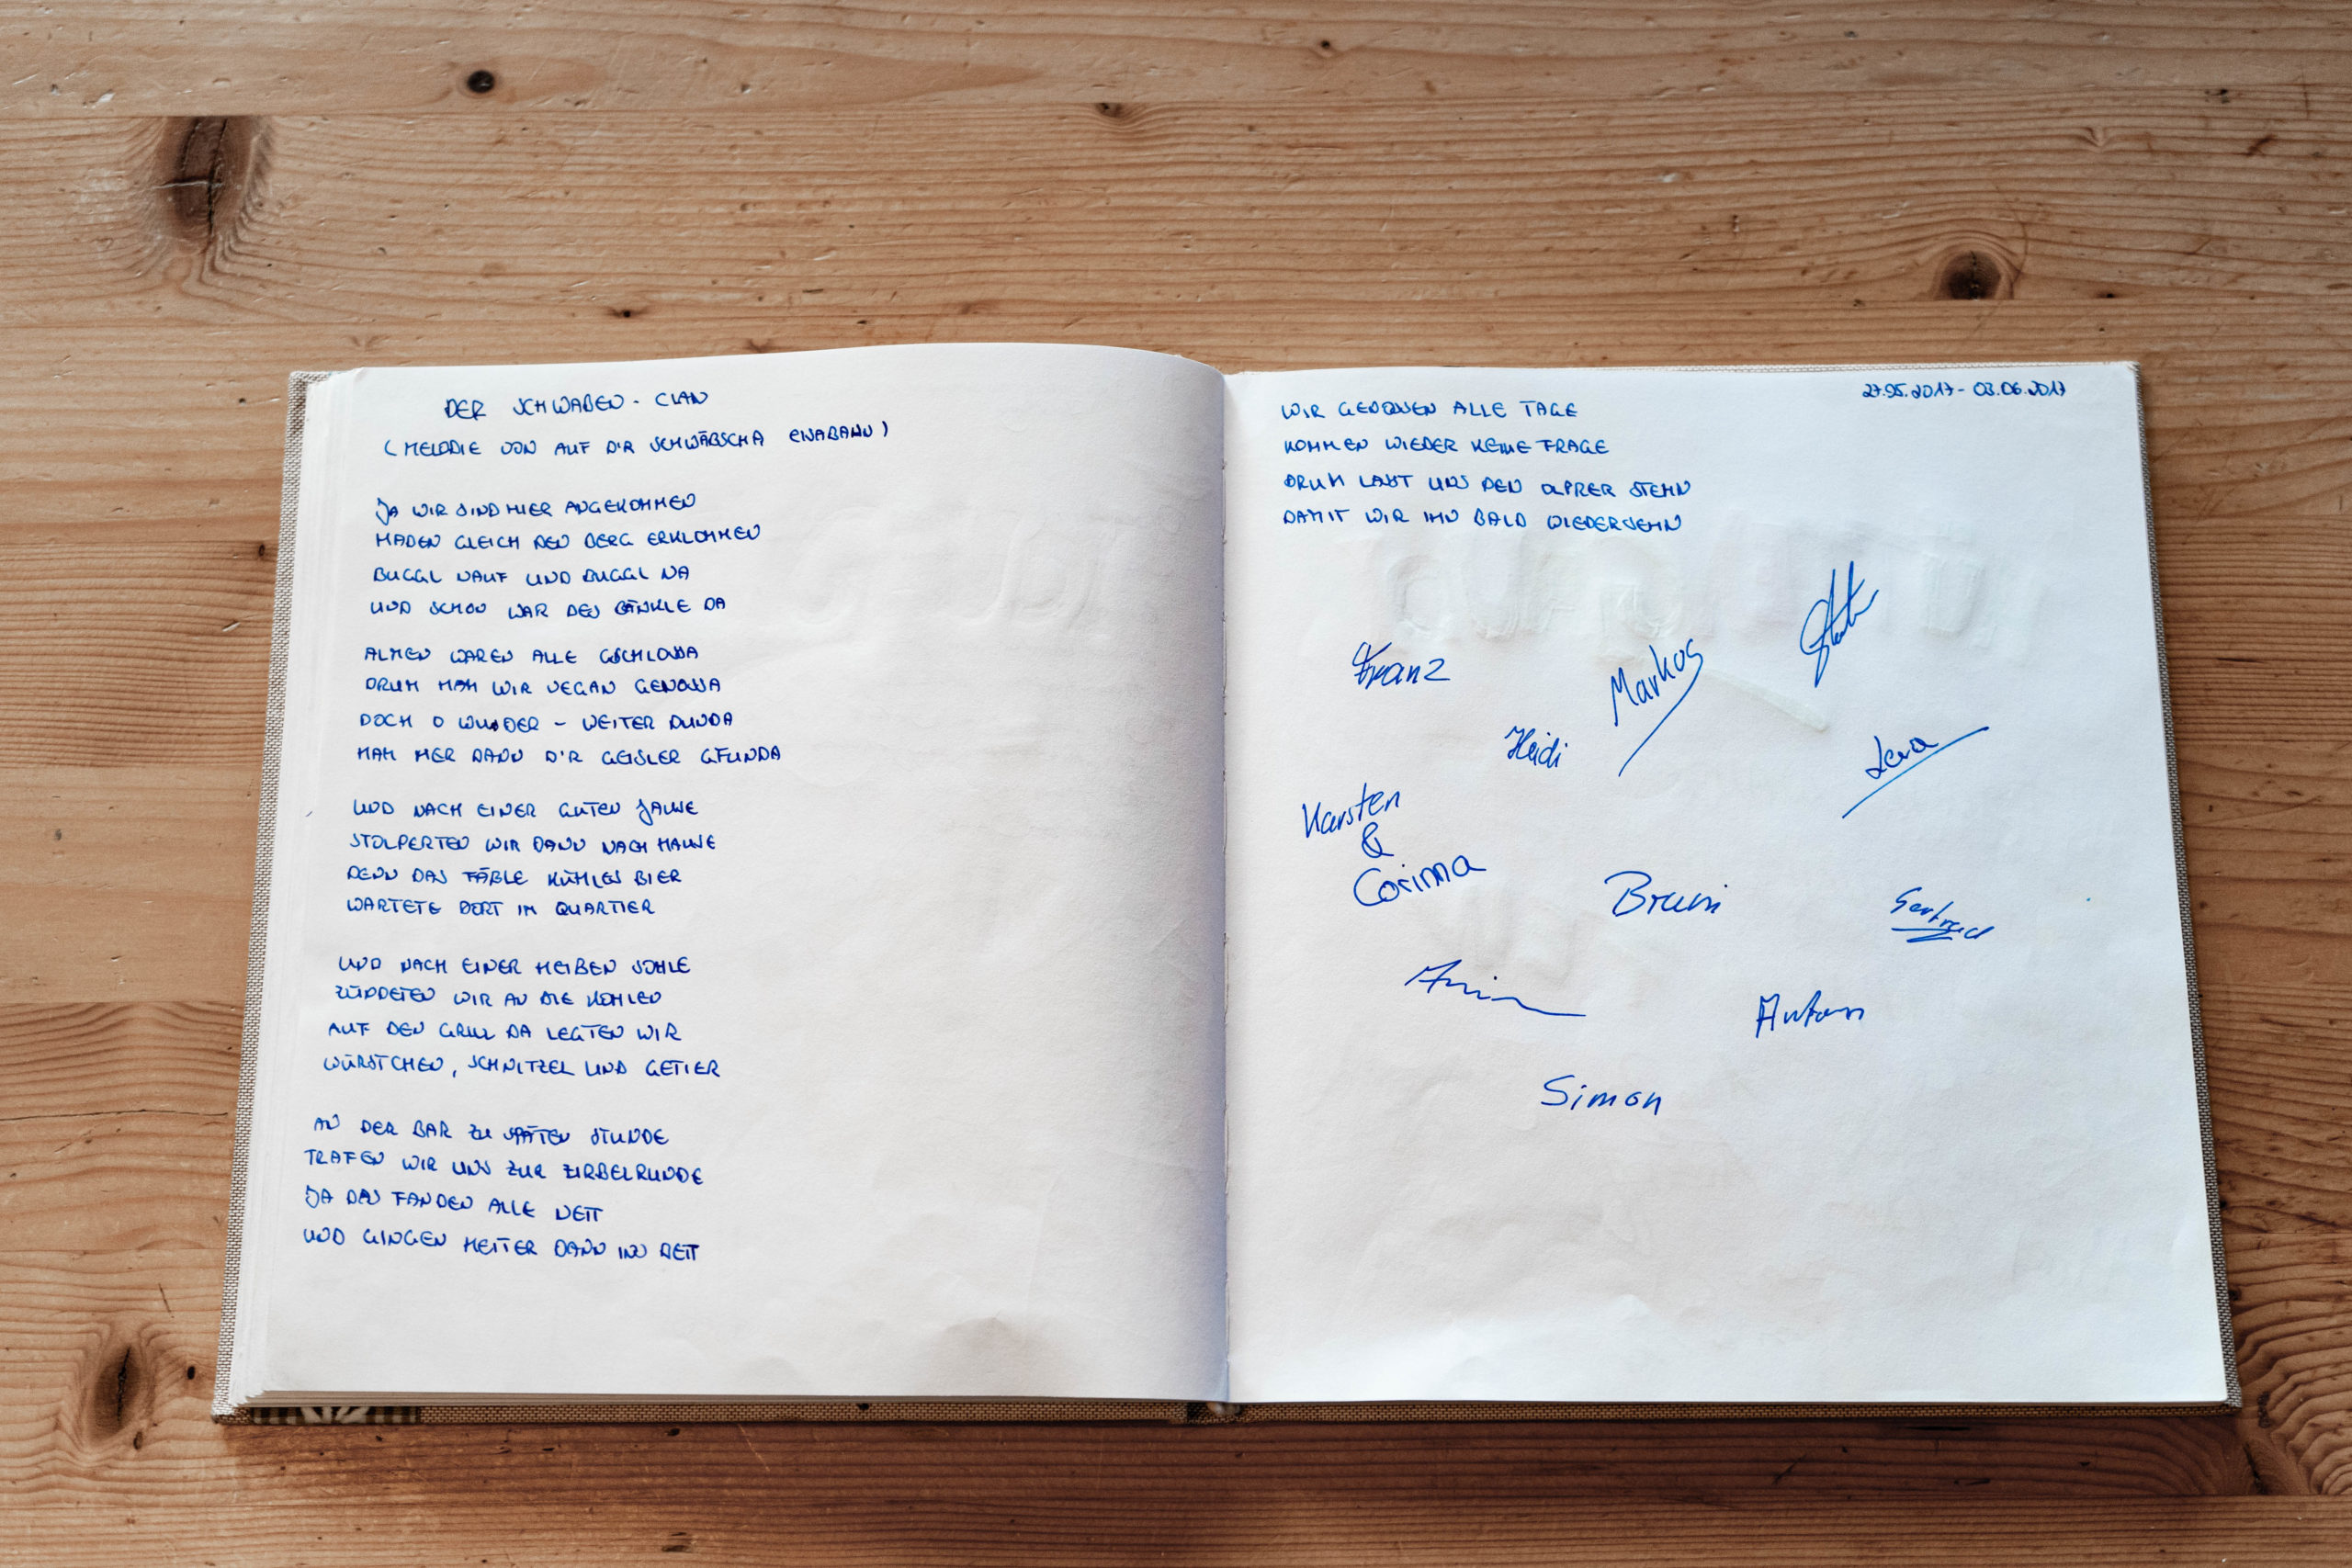 DER SCHWABEN-CLAN
(MELODIE VON AUF D'R SCHWÄBSCHA EISABAHN)
JA WIR SIND HIER ANGEKOMMEN
HABEN GLEICH DEN BERG ERKLOMMEN
BUGGL NAUF UND BUGGL NA
UND SCHON WAR DES BÄNKLE DA
ALMEN WAREN ALLE GSCHLOSSA
DRUM HAM WIR VEGAN GENOSSA
DOCH O WUNDER - WEITER DUNDA
HAM MER DANN D'R GEISLER GFUNDA
UND NACH EINER GUTEN JAUSE
STOLPERTEN WIR DANN NACH HAUSE
DENN DAS FÄßLE KÜHLES BIER
WARTETE DORT IM QUARTIER
UND NACH EINER HEIßEN SOHLE
ZÜNDETEN WIR AN DIE KOHLEN
AUF DEN GRILL DA LEGTEN WIR
WÜRSTCHEN, SCHNITZEL UND GETIER
AN DER BAR ZU SPÄTEN STUNDE
TRAFEN WIR UNS ZUR ZIRBELRUNDE
JA DAS FANDEN ALLE NETT
UND GINGEN HEITER DANN INS BETT
27.05.2017 - 03.06.2017
WIR GENOSSEN ALLE TAGE
KOMMEN WIEDER KEINE FRAGE
DRUM LASST UNS DEN OLPRER STEHN
DAMIT WIR IHN BALD WIEDERSEHN
Franz
Markus
Heidi
Lena
Karsten
&
Corinna
Bruni
Gertrud
Anton
Simon